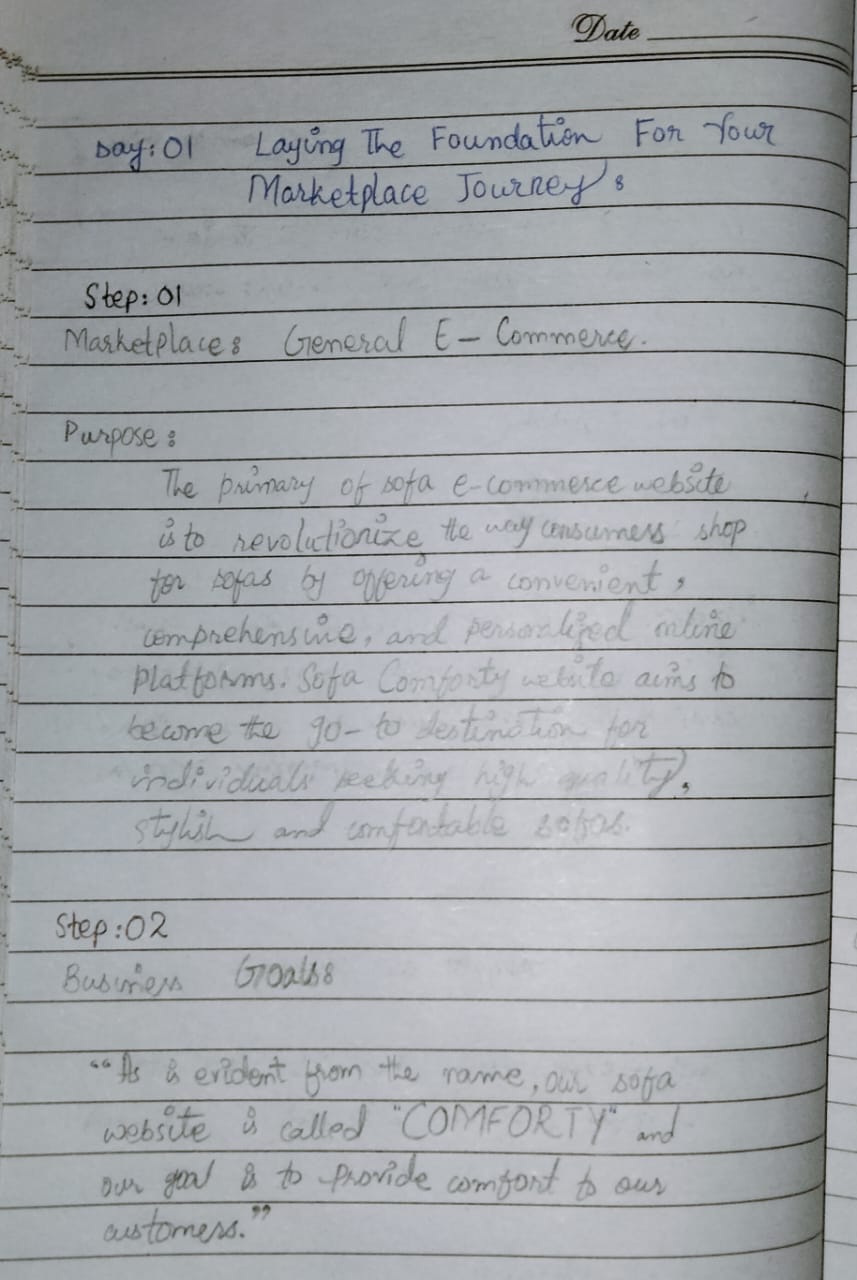 Date
Day: 01 Laying The Foundation For Your
Marketplace Journey:
Step: 01
Marketplace: General E- Commerce.
Purpose:
The primary of sofa e-commerce website
is to revolutionize the way consumers shop
for sofas by offering a convenient,
comprehensive, and personalized online
platforms. Sofa Comforty website aims to
become the go-to destination for
individuals seeking high quality,
stylish and comfortable sofas.
Step: 02
Business Goals:
"As is evident from the name, our sofa
website is called "COMFORTY" and
our goal is to provide comfort to our
customers."